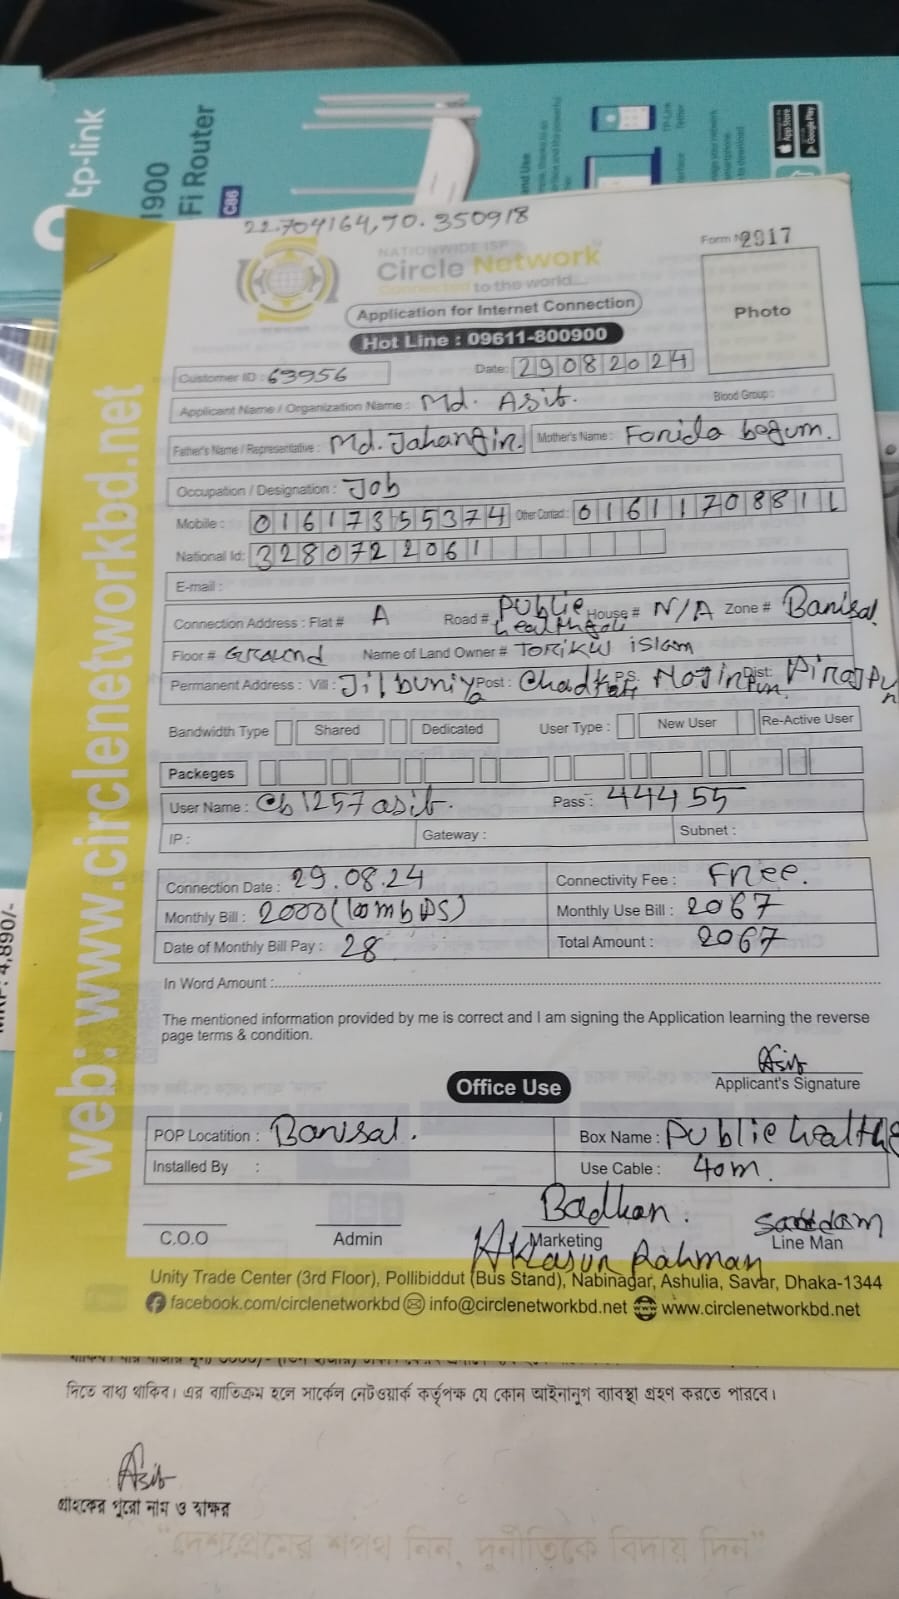 tp-link
1900
Fi Router
C86
MRP: 4,890/-
22.704164, 90.350918
NATIONWIDE ISP
Circle Network
Connected to the world...
Form № 2917
Application for Internet Connection
Photo
Hot Line : 09611-800900
Customer ID : 63956 Date: 29082024
Applicant Name / Organization Name : Md. Asib. Blood Group :
Father's Name / Representative : Md. Jahangir. Mother's Name : Farida begum.
Occupation / Designation : Job
Mobile : 01617355374 Other Contact : 01611708811
National Id: 3280722061
E-mail :
Connection Address : Flat # A Road # Public healthgoli House # N/A Zone # Barisal
Floor # Ground Name of Land Owner # Torikul islam
Permanent Address : Vill : Jilbuniya Post : P.S. Dist: Pirojpur
Bandwidth Type Shared Dedicated User Type : New User Re-Active User
Packeges
User Name : cb1257asib. Pass : 444455
IP : Gateway : Subnet :
Connection Date : 29.08.24 Connectivity Fee : Free.
Monthly Bill : 2000(100mbps) Monthly Use Bill : 2067
Date of Monthly Bill Pay : 28 Total Amount : 2067
In Word Amount :
The mentioned information provided by me is correct and I am signing the Application learning the reverse
page terms & condition.
Asib
Applicant's Signature
Office Use
POP Locatition : Barisal. Box Name : Public healthe
Installed By : Use Cable : 40m.
Badhan. Saddam
C.O.O Admin Marketing Line Man
Rahman
Unity Trade Center (3rd Floor), Pollibiddut (Bus Stand), Nabinagar, Ashulia, Savar, Dhaka-1344
facebook.com/circlenetworkbd info@circlenetworkbd.net www.circlenetworkbd.net
web: www.circlenetworkbd.net
দিতে বাধ্য থাকিব। এর ব্যতিক্রম হলে সার্কেল নেটওয়ার্ক কর্তৃপক্ষ যে কোন আইনানুগ ব্যাবস্থা গ্রহণ করতে পারবে।
Asib
গ্রাহকের পুরো নাম ও স্বাক্ষর
"দেশপ্রেমের শপথ নিন, দুর্নীতিকে বিদায় দিন"